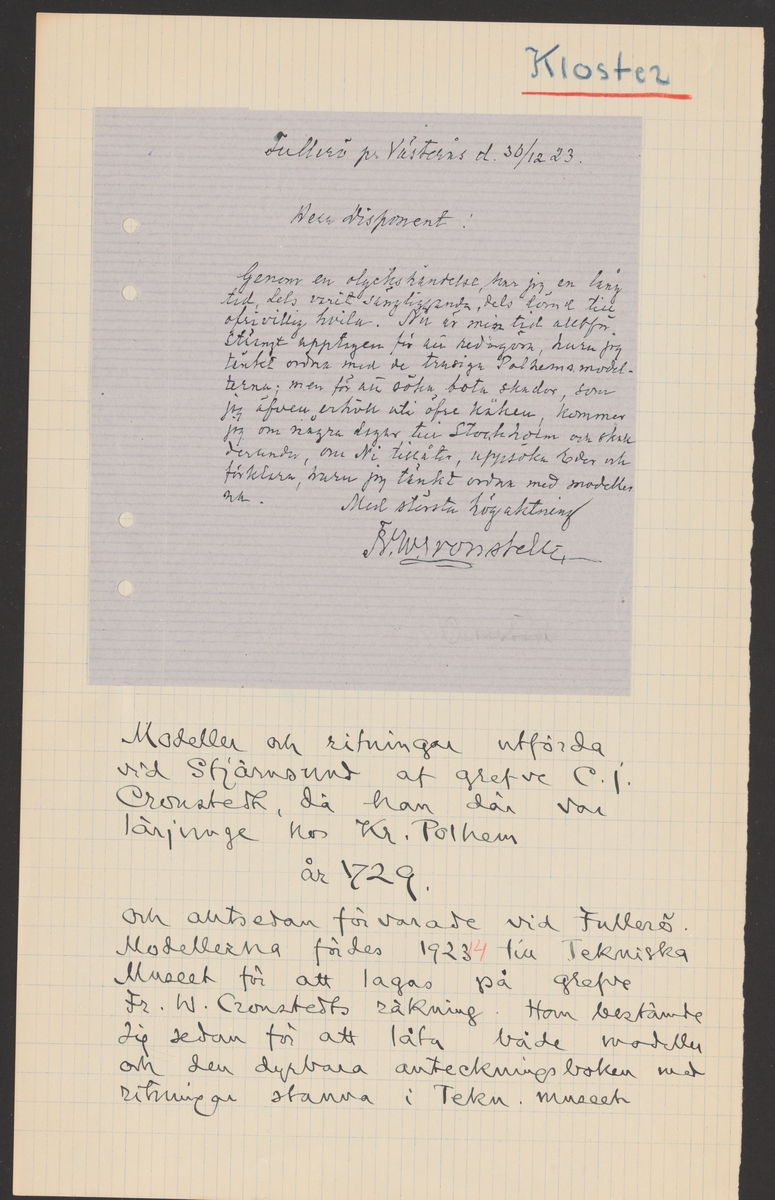 Kloster
Fullerö pr Västerås d. 30/12 23.
Herr Disponent :
Genom en olyckshändelse, har jag en lång
tid, dels varit sängliggande, dels dömd till
ofrivillig hvila. Nu är min tid alltför
strängt upptagen för att redogöra, huru jag
tänkt ordna med de trasiga Polhemsmodel-
lerna; men för att söka bota skador, som
jag äfven erhöll uti öfre käken, kommer
jag om några dagar till Stockholm och skall
derunder, om Ni tillåter, uppsöka Eder och
förklara, huru jag tänkt ordna med modeller
na.
Med största högaktning
Fr. W. Cronstedt
Modeller och ritningar utförda
vid Stjärnsund af grefve C. J.
Cronstedt, då han där var
lärjunge hos Kr. Polhem
år 1729.
och alltsedan förvarade vid Fullerö.
Modellerna fördes 1923/4 till Tekniska
Museet för att lagas på grefve
Fr. W. Cronstedts räkning. Han bestämde
sig sedan för att låta både modeller
och den dyrbara anteckningsboken med
ritningar stanna i Tekn. museet